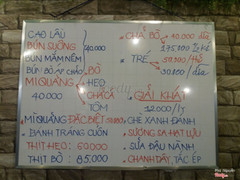 CAO LẦU
BÚN SƯỜNG
BÚN MẮM NÊM
BÚN BÒ ÁP CHẢO
40.000
MÌ QUẢNG
BÒ
HEO
CHẢ CÁ
TÔM
40.000
MÌ QUẢNG ĐẶC BIỆT
BÁNH TRÁNG CUỐN
THỊT HEO: 60.000
THỊT BÒ 85.000
CHẢ BÒ
175.000
TRÉ
30.000
GIẢI KHÁT
12.000/LY
CHÈ XANH ĐÁNH
SƯƠNG SA HẠT LỰU
SỮA ĐẬU NÀNH
CHANH DÂY, TẮC ÉP